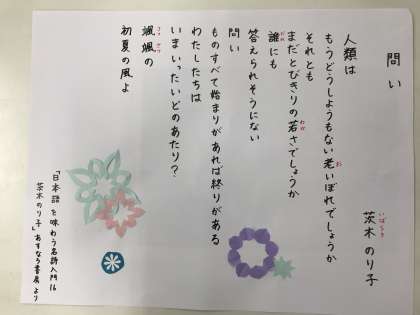 問い
茨木 のり子
人類は
もうどうしようもない老いぼれでしょうか
それとも
まだとびきりの若さでしょうか
誰にも
答えられそうにない
問い
ものすべて始まりがあれば終りがある
わたしたちは
いまいったいどのあたり？
颯颯の
初夏の風よ
「日本語を味わう名詩入門16
茨木のり子」あすなろ書房より